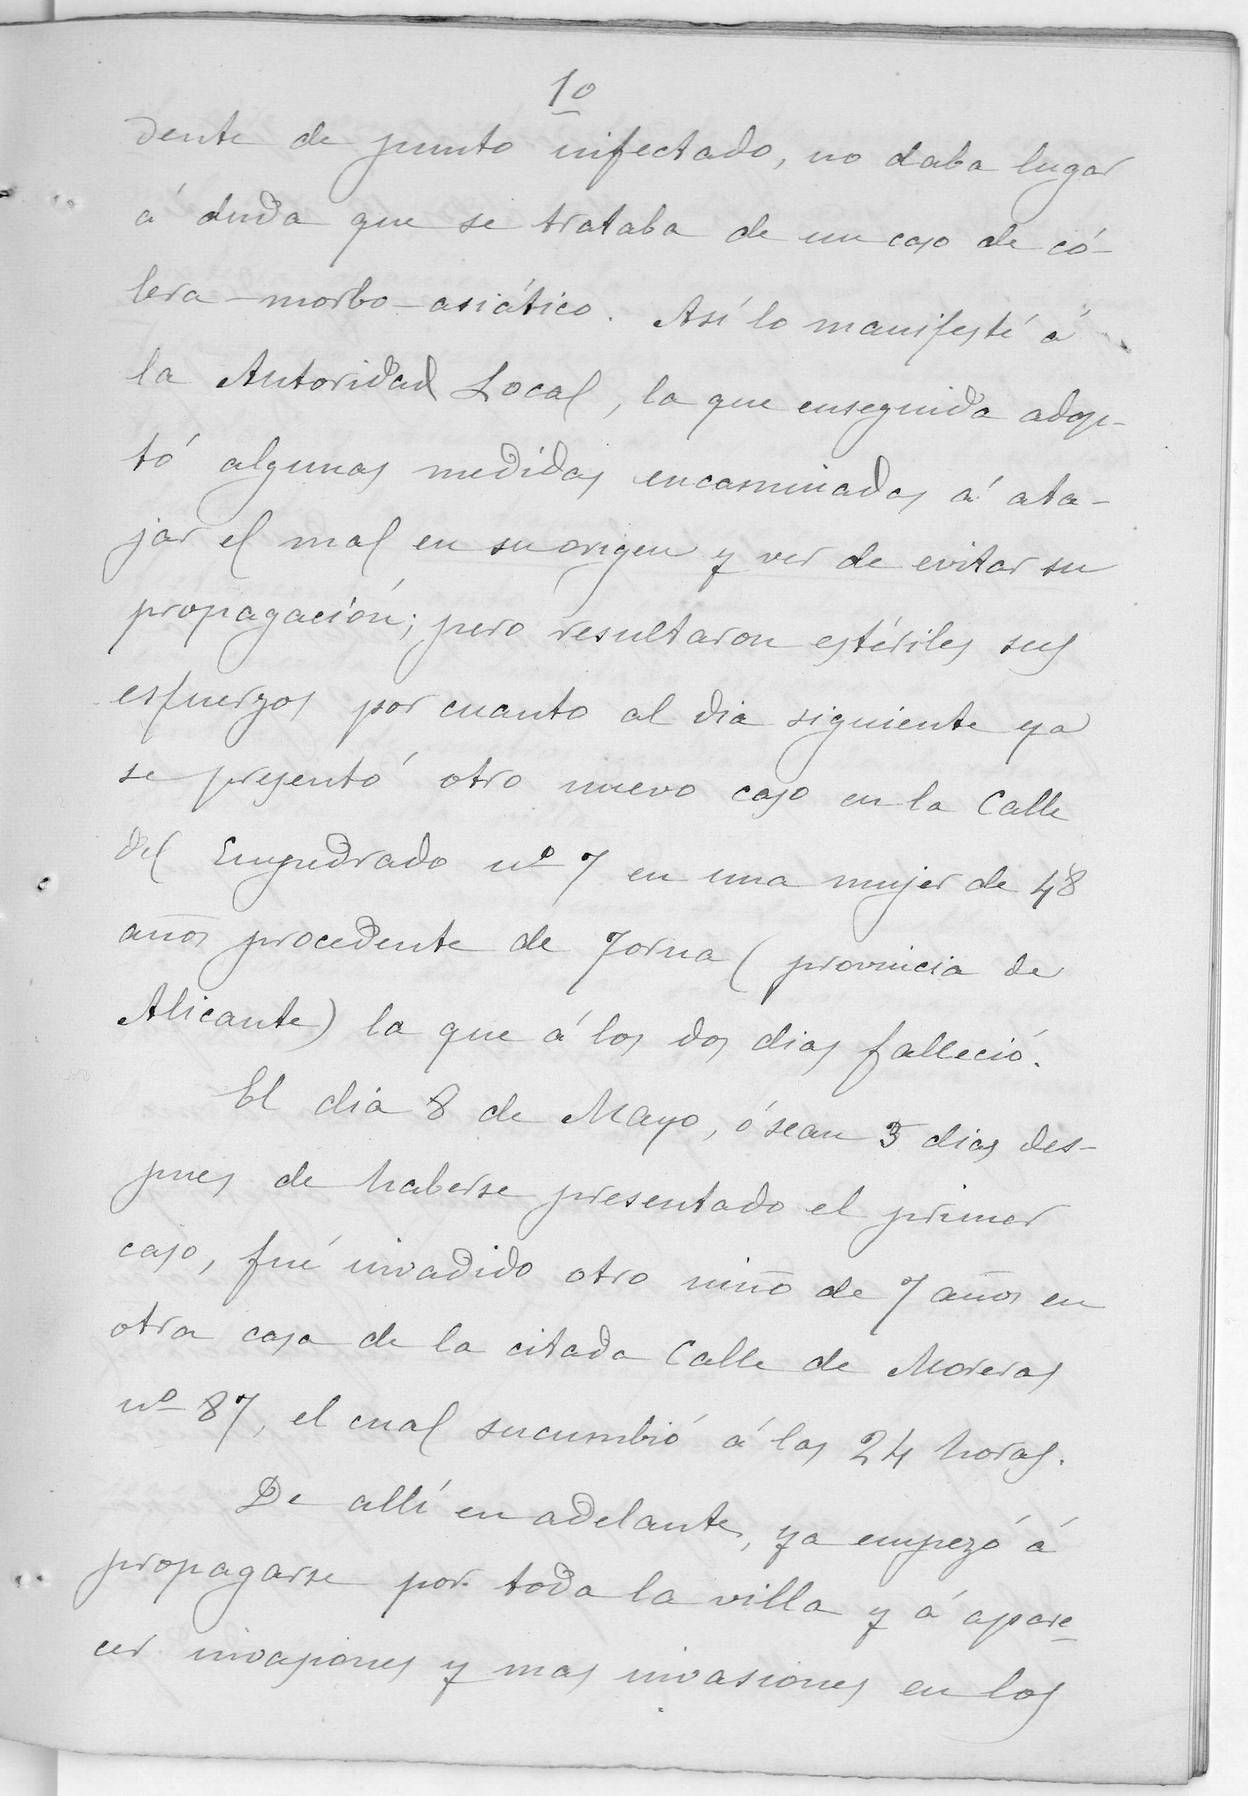 10
dente de punto infectado, no daba lugar
á duda que se trataba de un caso de có-
lera-morbo-asiático. Así lo manifesté á
la Autoridad Local, la que enseguida adop-
tó algunas medidas encaminadas á ata-
jar el mal en su origen y ver de evitar su
propagación; pero resultaron estériles sus
esfuerzos por cuanto al dia siguiente ya
se presentó otro nuevo caso en la Calle
del Empedrado nº 7 en una mujer de 48
años procedente de Jorna (provincia de
Alicante) la que á los dos dias falleció.
El dia 8 de Mayo, ó sean 3 dias des-
pues de haberse presentado el primer
caso, fué invadido otro niño de 7 años en
otra casa de la citada Calle de Moreras
nº 87, el cual sucumbió á las 24 horas.
De allí en adelante, ya empezó á
propagarse por toda la villa y á apare-
cer invasiones y mas invasiones en los